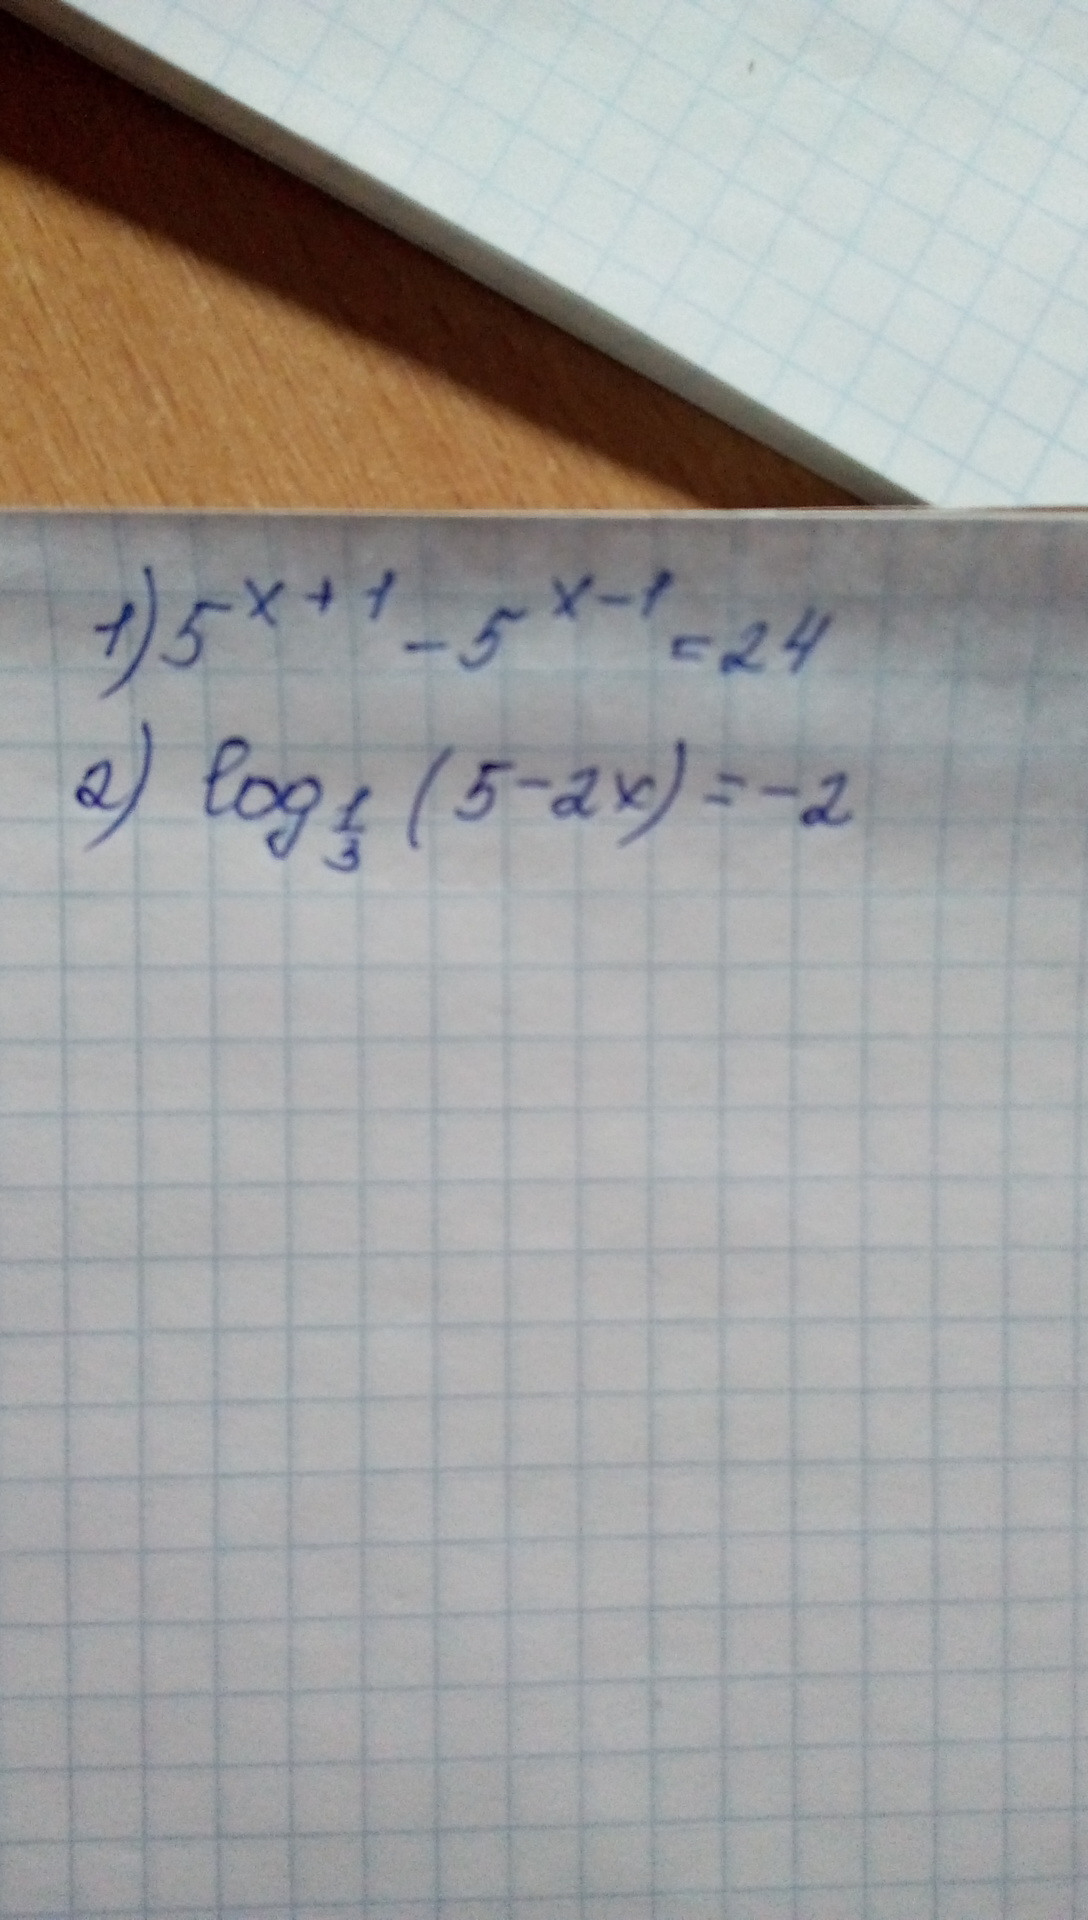 1) 5^{x+1} - 5^{x-1} = 24
2) log_{1/3} (5-2x) = -2